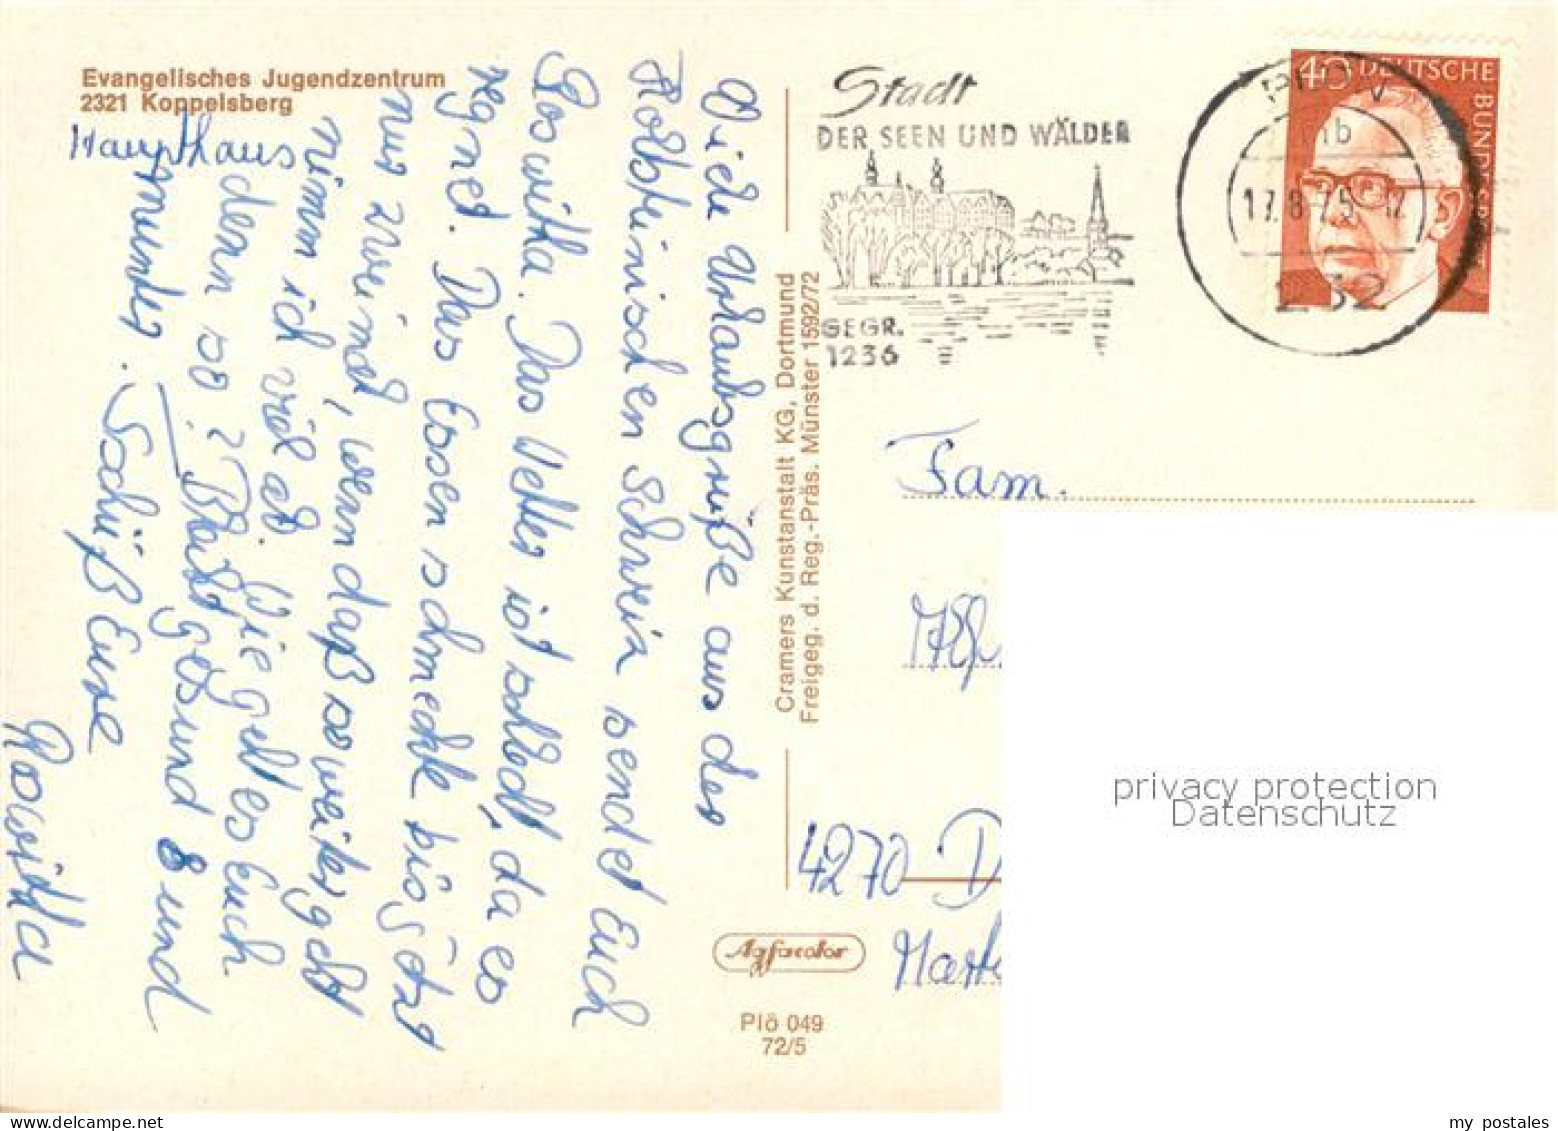 Evangelisches Jugendzentrum
2321 Koppelsberg
Haupthaus
Viele Urlaubsgrüße aus der
Holsteinischen Schweiz sendet Euch
Roswitha. Das Wetter ist schlecht, da es
regnet. Das Essen schmeckt bis jetzt
nur zweimal, wenn daß so weiter geht
nimm ich viel ab. Wie geht es Euch
denn so? Bleibt gesund & und
munter. Schüß Eure
Roswitha
Cramers Kunstanstalt KG, Dortmund
Freigeg. d. Reg.-Präs. Münster 1592/72
Agfacolor
Plö 049
72/5
Stadt
DER SEEN UND WÄLDER
GEGR.
1236
17.8.75
232
40 DEUTSCHE BUNDESPOST
Fam.
4270 D
privacy protection
Datenschutz
my postales